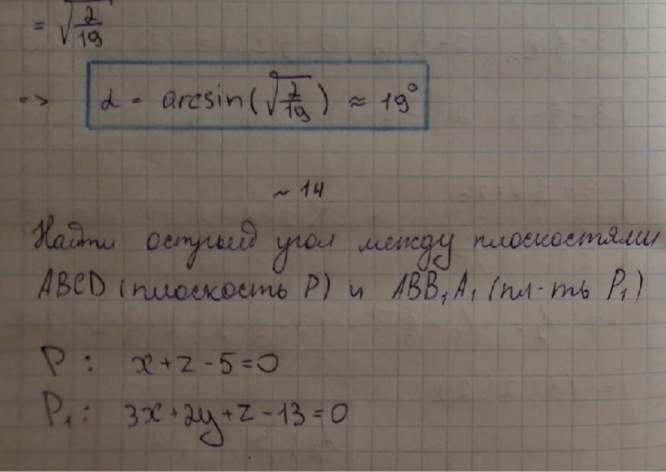 = √(2/19)
=> α = arcsin(√(2/19)) ≈ 19°
~ 14
Найти острый угол между плоскостями
ABCD (плоскость P) и ABB₁A₁ (пл-ть P₁)
P: x + z - 5 = 0
P₁: 3x + 2y + z - 13 = 0